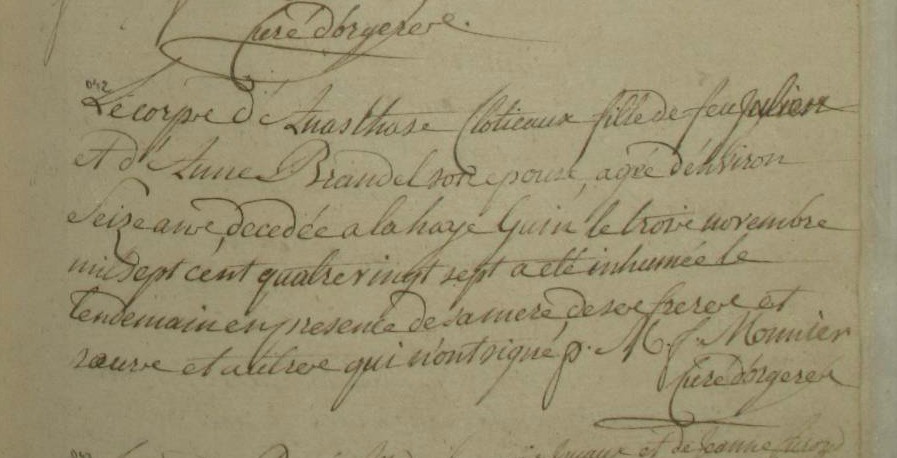 Curé d'orgeres.
042
Le corps d'Anasthase Cloteaux fille de feu Julien
et d'Anne Brandel son epouse, agée d'environ
Seize ans, decedée a la haye Guin le trois novembre
mil sept cent quatre vingt sept a eté inhumée le
lendemain en presence de sa mere, de ses freres et
sœurs et autres qui n'ont signé p. M. J. Monnier
Curé d'orgeres
042
et de Jeanne